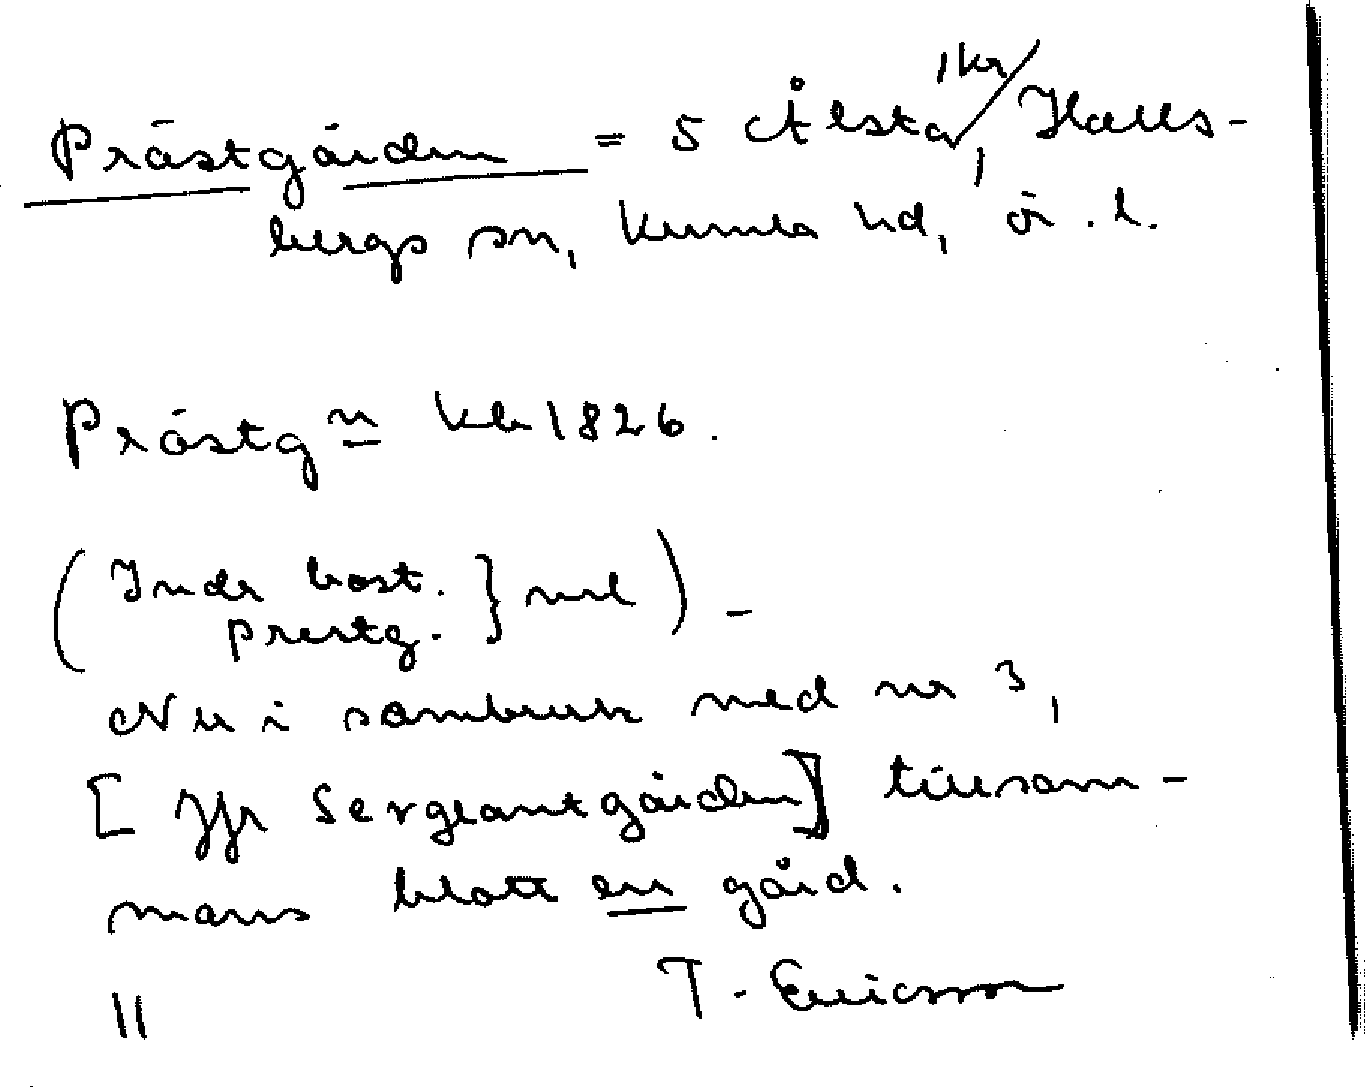 Prästgården = 5 Ålsta, 1 kr/ Halls-
bergs sn, Kumla hd, Ör. l.
Prästg n kb 1826.
(Indr bost. } mil) -
prestg.
Nu i sambruk med nr 3,
[Jfr Sergeantgården] tillsam-
mans blott en gård.
T. Ericsson